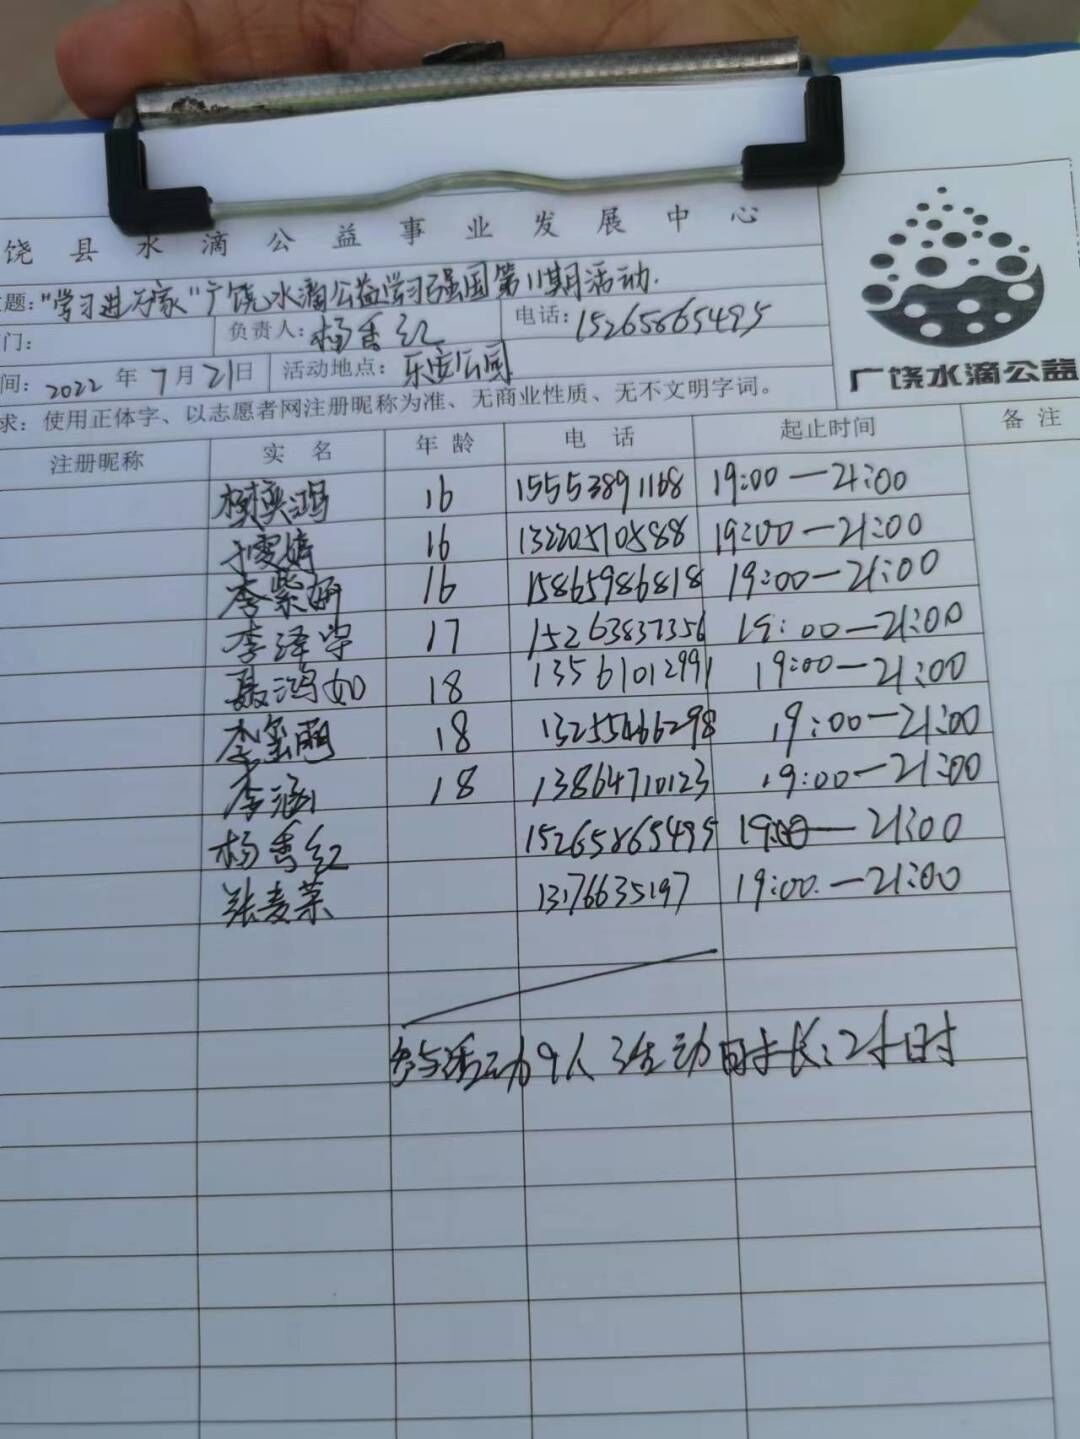 饶县水滴公益事业发展中心
题："学习进万家"广饶水滴公益学习强国第11期活动.
门： 负责人：杨秀红 电话：15265865495
间：2022年7月21日 活动地点：乐安公园
求：使用正体字、以志愿者网注册昵称为准、无商业性质、无不文明字词。
广饶水滴公益
注册昵称 实名 年龄 电话 起止时间 备注
16 15553891168 19:00—21:00
于雯婷 16 13220510588 19:00—21:00
李紫妍 16 15865986818 19:00—21:00
李泽宇 17 15263837356 19:00—21:00
聂鸿如 18 13561012991 19:00—21:00
李玺萌 18 19:00—21:00
李涵 18 13864710123 19:00—21:00
杨秀红 15265865495 19:00—21:00
张麦菜 13176635197 19:00.—21:00
参与活动9人 活动时长:2小时